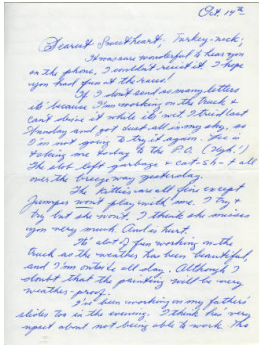 Oct. 14th
Dearest Sweetheart, Turkey-neck,
It was wonderful to hear you
on the phone, I couldn't resist it. I hope
you had fun at the races!
If I don't send as many letters
its because I'm working on the truck &
can't drive it while its wet. I tried last
Sunday and got dust all in my sky, so
I'm not going to try it again. is
taking me today to the P.O. (Ugh!)
The slob left garbage & cat-sh-t all
over the breezeway yesterday.
The kitties are all fine except
Jumper won't play with me. I try &
try but she won't. I think she misses
you very much. And is hurt.
It's lots of fun working on the
truck as the weather has been beautiful,
and I'm outside all day. Although I
doubt that the painting will be very
weather-proof.
I've been working on my father's
slides too in the evening. I think he's very
upset about not being able to work. The